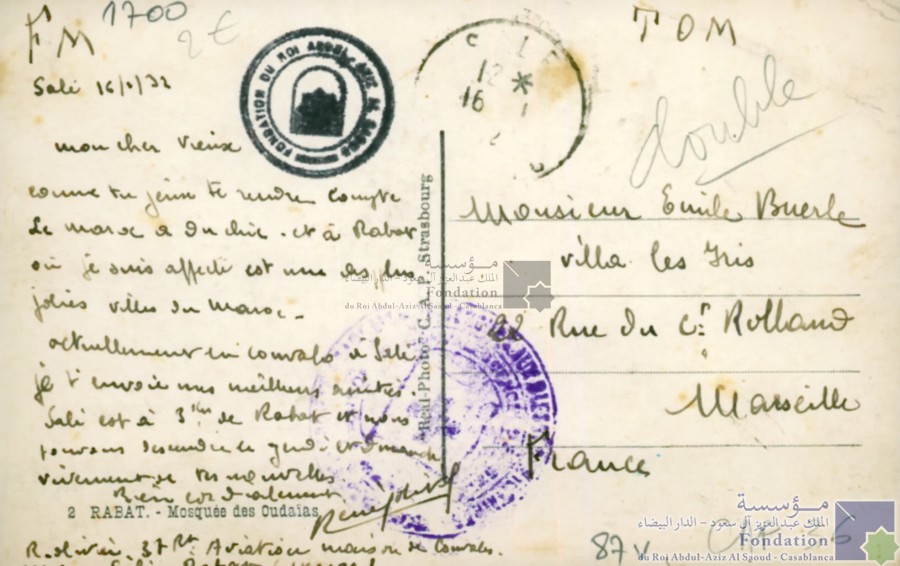 1700
FM
2€
TOM
double
Salé 16/1/32
FONDATION DU ROI ABDUL AZIZ AL SAOUD
mon cher vieux
comme tu peux te rendre compte
Le maroc a du chic. et à Rabat
où je suis affecté est une des plus
jolies villes du maroc.
actuellement en convalo à Salé
je t'envoie mes meilleures amitiés.
Salé est à 3 km de Rabat et nous
pouvons descendre le jeudi et dimanche
vivement de tes nouvelles
Bien cordialement
2 RABAT. - Mosquée des Oudaïas
R. olivier. 37 Rt Aviation maison de Convales.
Réal-Photo C. A. P. Strasbourg
16
Monsieur Emile Buerle
villa les Iris
Rue du Ct Rolland
Marseille
France
مؤسسة
الملك عبدالعزيز آل سعود - الدار البيضاء
Fondation
du Roi Abdul-Aziz Al Saoud - Casablanca
87
مؤسسة
الملك عبدالعزيز آل سعود - الدار البيضاء
Fondation
du Roi Abdul-Aziz Al Saoud - Casablanca